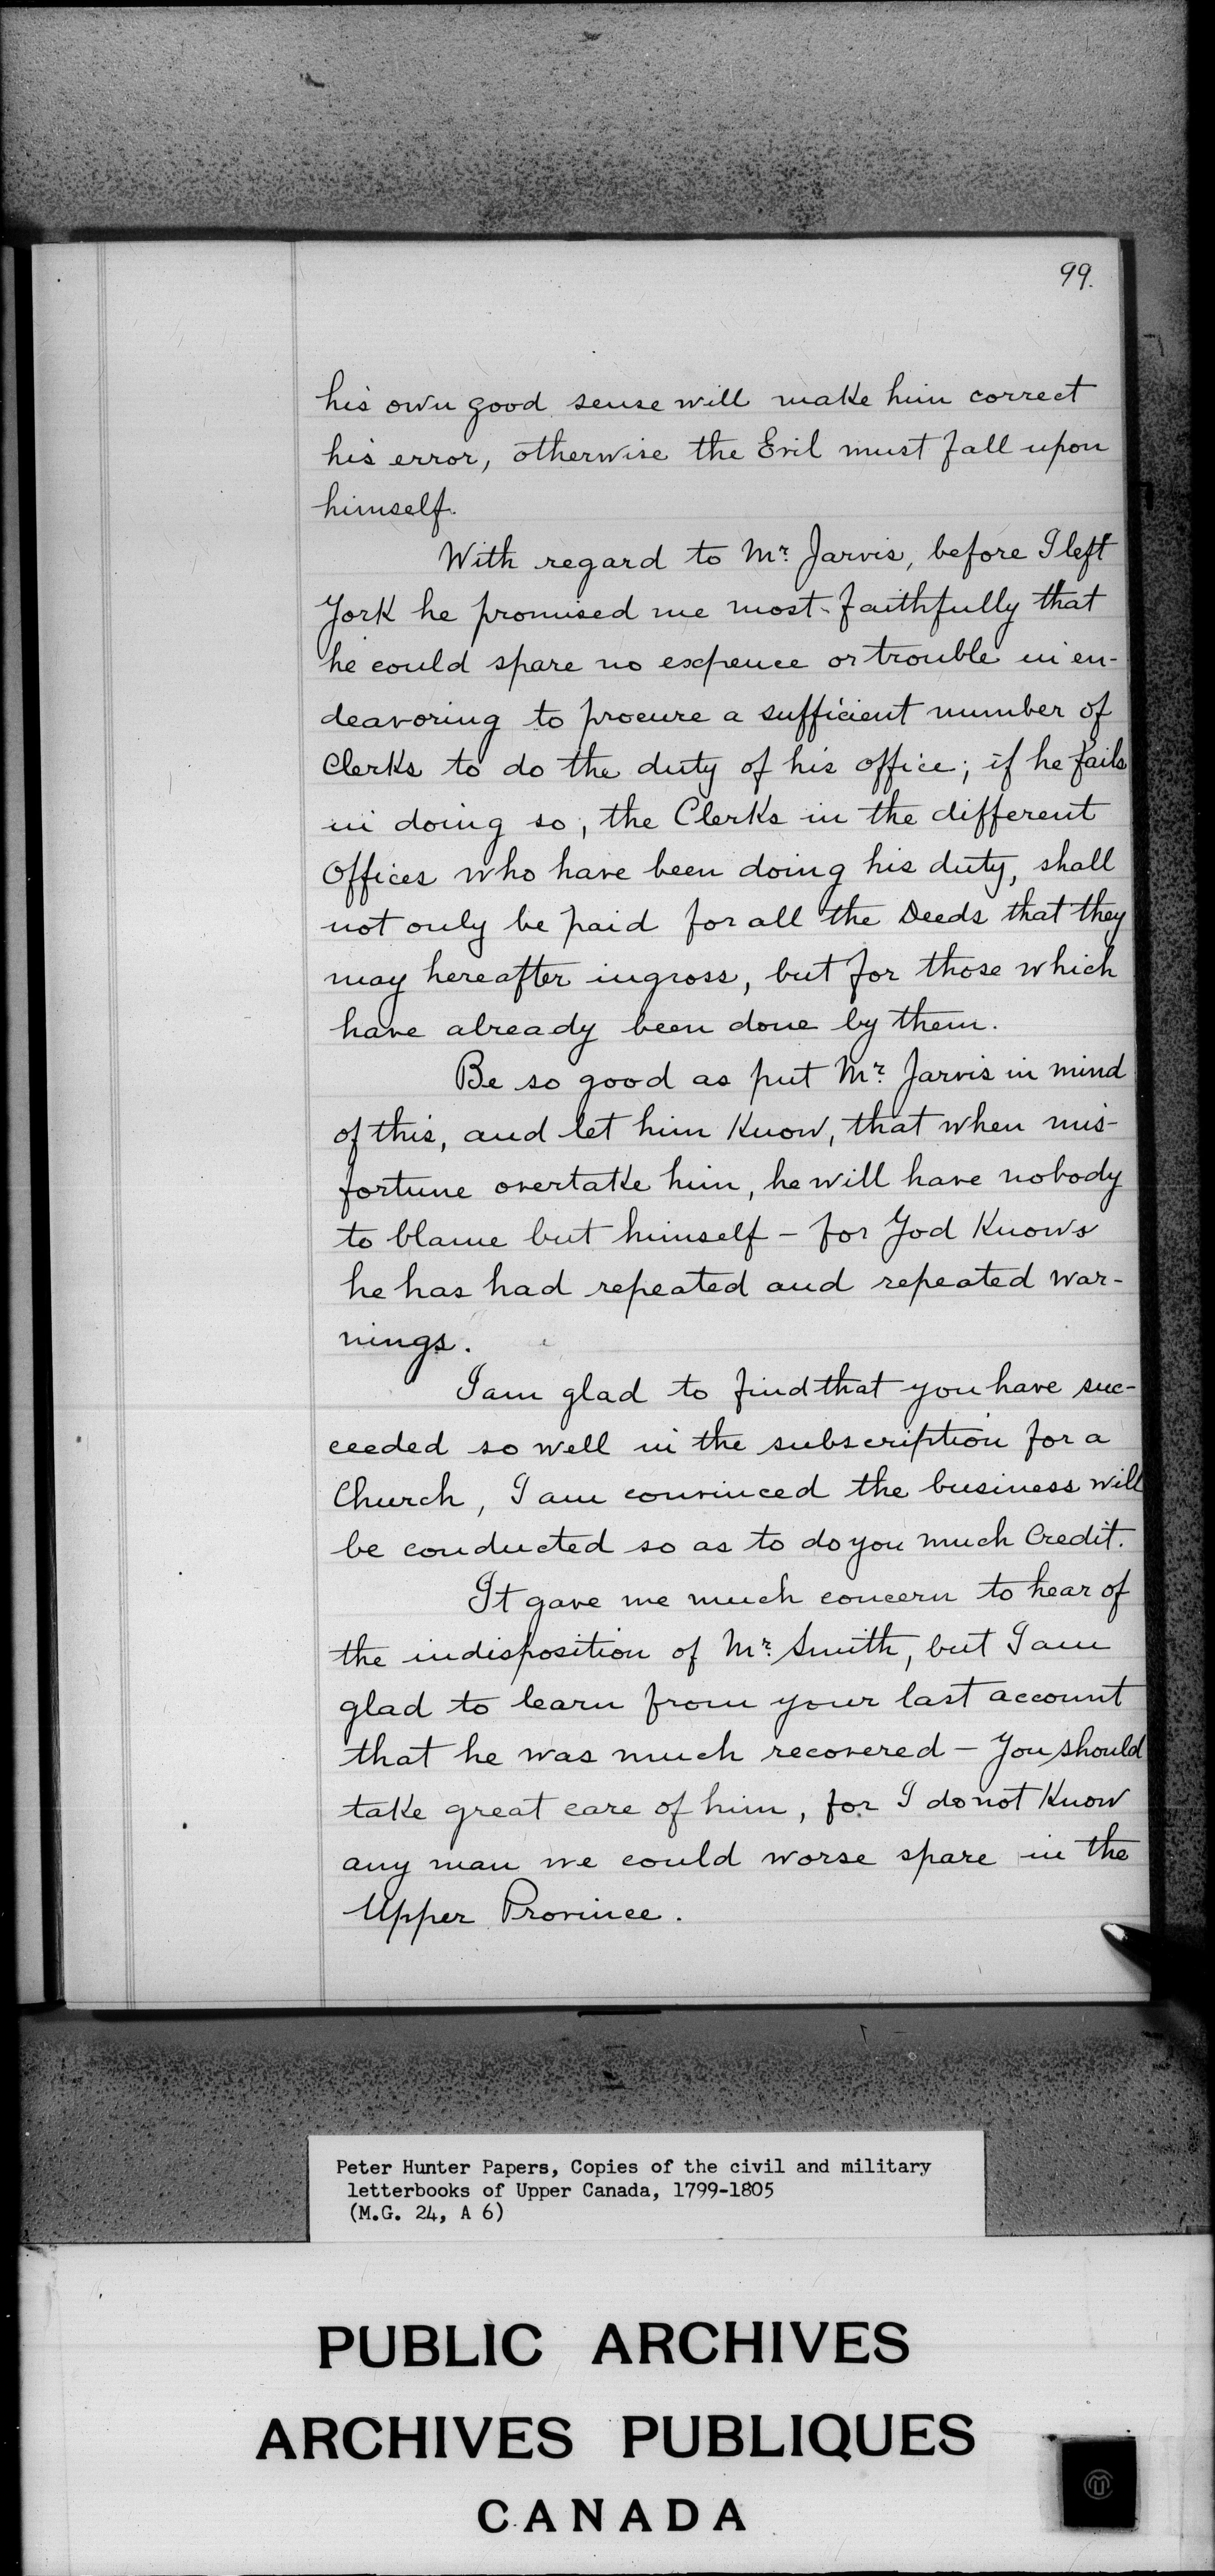 99.
his own good sense will make him correct
his error, otherwise the Evil must fall upon
himself.
With regard to Mr. Jarvis, before I left
York he promised me most faithfully that
he could spare no expence or trouble in en-
deavoring to procure a sufficient number of
Clerks to do the duty of his office; if he fails
in doing so, the Clerks in the different
Offices who have been doing his duty, shall
not only be paid for all the Deeds that they
may hereafter ingross, but for those which
have already been done by them.
Be so good as put Mr. Jarvis in mind
of this, and let him Know, that when mis-
fortune overtake him, he will have nobody
to blame but himself - for God Knows
he has had repeated and repeated war-
nings.
I am glad to find that you have suc-
ceeded so well in the subscription for a
Church, I am convinced the business will
be conducted so as to do you much Credit.
It gave me much concern to hear of
the indisposition of Mr. Smith, but I am
glad to learn from your last account
that he was much recovered - You should
take great care of him, for I do not Know
any man we could worse spare in the
Upper Province.
Peter Hunter Papers, Copies of the civil and military
letterbooks of Upper Canada, 1799-1805
(M.G. 24, A 6)
PUBLIC ARCHIVES
ARCHIVES PUBLIQUES
CANADA